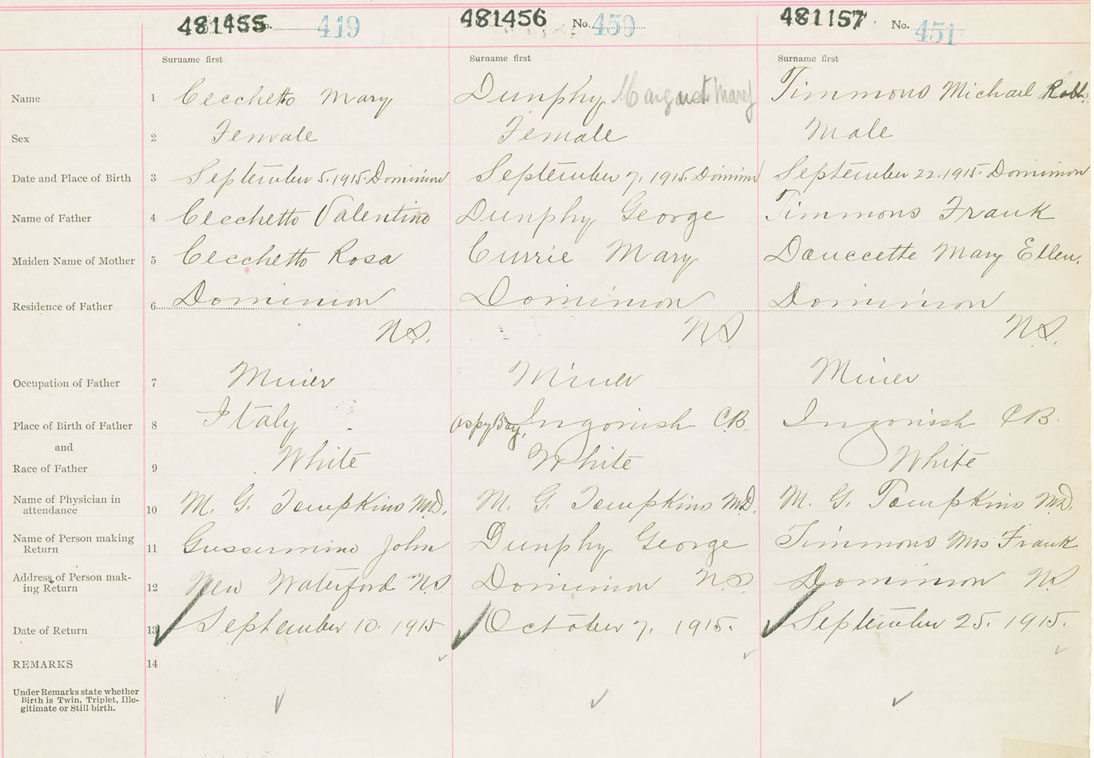 481455 No. 449 481456 No. 450 481457 No. 451
Surname first Surname first Surname first
Name 1 Cecchetto Mary Dunphy Margaret Mary Timmons Michael Robt.
Sex 2 Female Female Male
Date and Place of Birth 3 September 5. 1915. Dominion September 7. 1915. Dominion September 22. 1915. Dominion
Name of Father 4 Cecchetto Valentino Dunphy George Timmons Frank
Maiden Name of Mother 5 Cecchetto Rosa Currie Mary Douccette Mary Ellen.
Residence of Father 6 Dominion Dominion Dominion
N.S. N.S. N.S.
Occupation of Father 7 Miner Miner Miner
Place of Birth of Father 8 Italy Aspy Bay, Ingonish C.B. Ingonish C.B.
and
Race of Father 9 White White White
Name of Physician in
attendance 10 M. G. Tompkins M.D. M. G. Tompkins M.D. M. G. Tompkins M.D.
Name of Person making
Return 11 John Dunphy George Timmons Mrs Frank
Address of Person mak-
ing Return 12 New Waterford N.S. Dominion N.S. Dominion N.S.
Date of Return 13 September 10. 1915 October 7. 1915. September 25. 1915.
REMARKS 14
Under Remarks state whether
Birth is Twin, Triplet, Ille-
gitimate or Still birth.